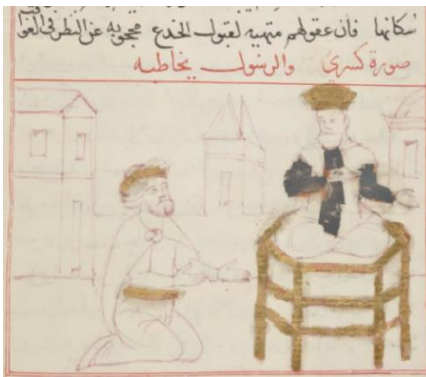 سكانها فان عقولهم متهيه لقبول الخدع محجوبه عن النظر في العواقب
صورة كسرى والرسول يخاطبه